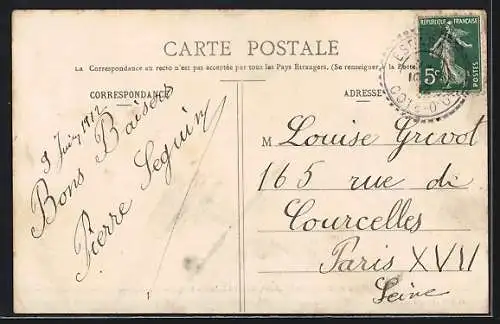 CARTE POSTALE
La Correspondance au recto n'est pas acceptée par tous les Pays Étrangers. (Se renseigner à la Poste.)
CORRESPONDANCE
ADRESSE
RÉPUBLIQUE FRANÇAISE
5c
POSTES
CÔTE-D'OR
Juin 1912
Bons Baisers
Pierre Seguin
M Louise Grivot
165 rue de
Courcelles
Paris XVII
Seine
1